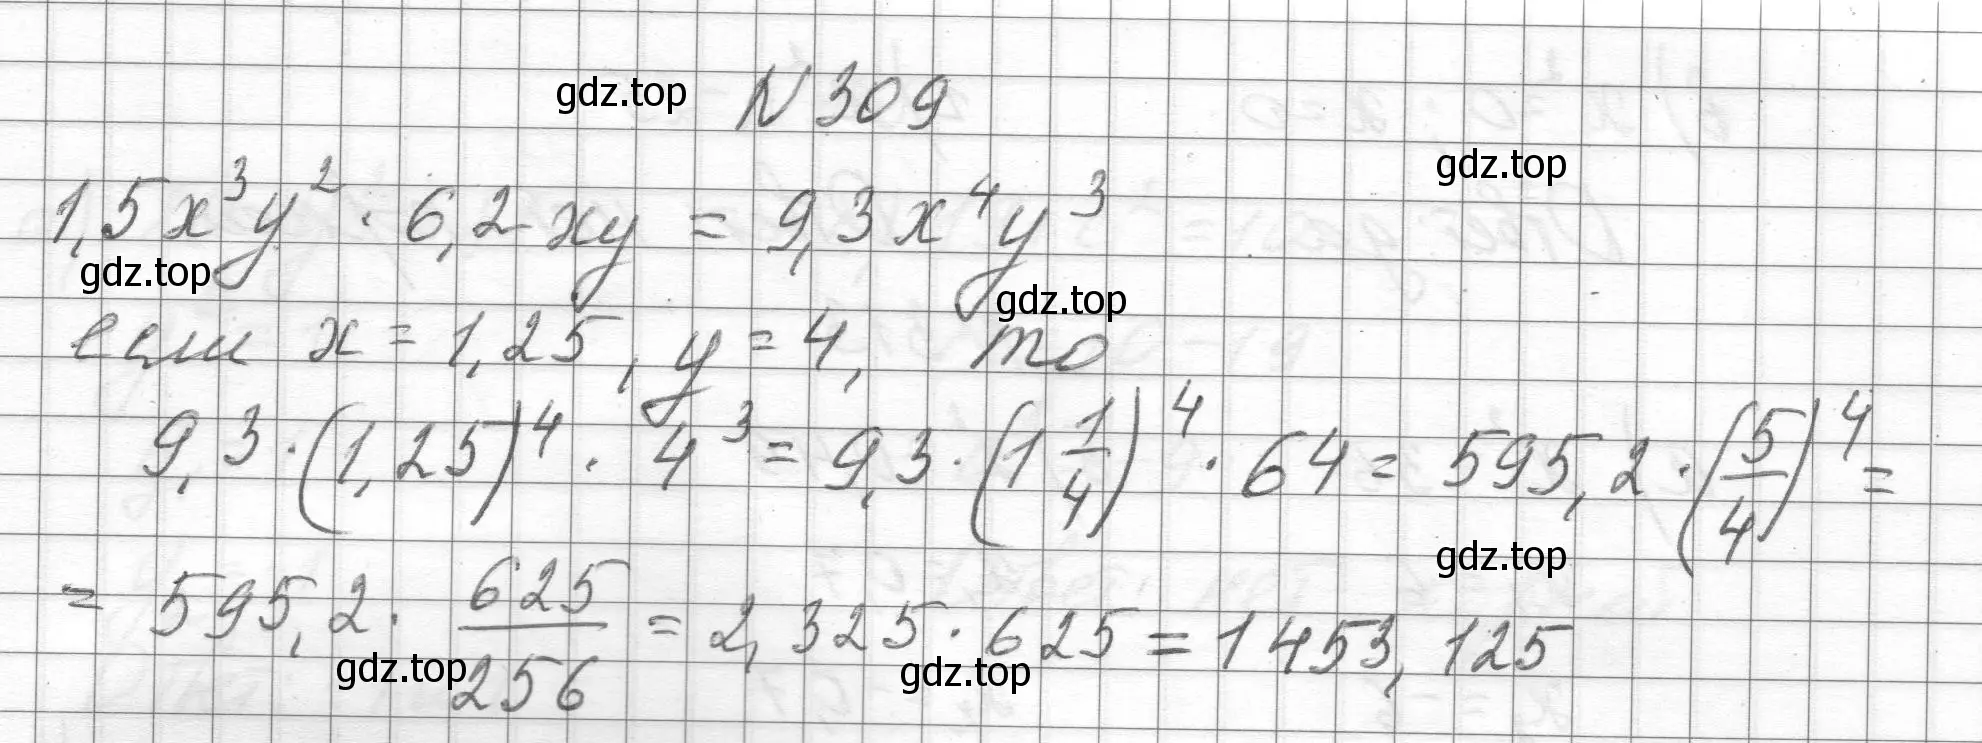 gdz.top N 309
gdz.top
1,5x³y² · 6,2xy = 9,3x⁴y³
gdz.top gdz.top
если x = 1,25, y = 4, то
9,3 · (1,25)⁴ · 4³ = 9,3 · (1 1/4)⁴ · 64 = 595,2 · (5/4)⁴ =
gdz.top
= 595,2 · 625/256 = 2,325 · 625 = 1453,125
gdz.top gdz.top